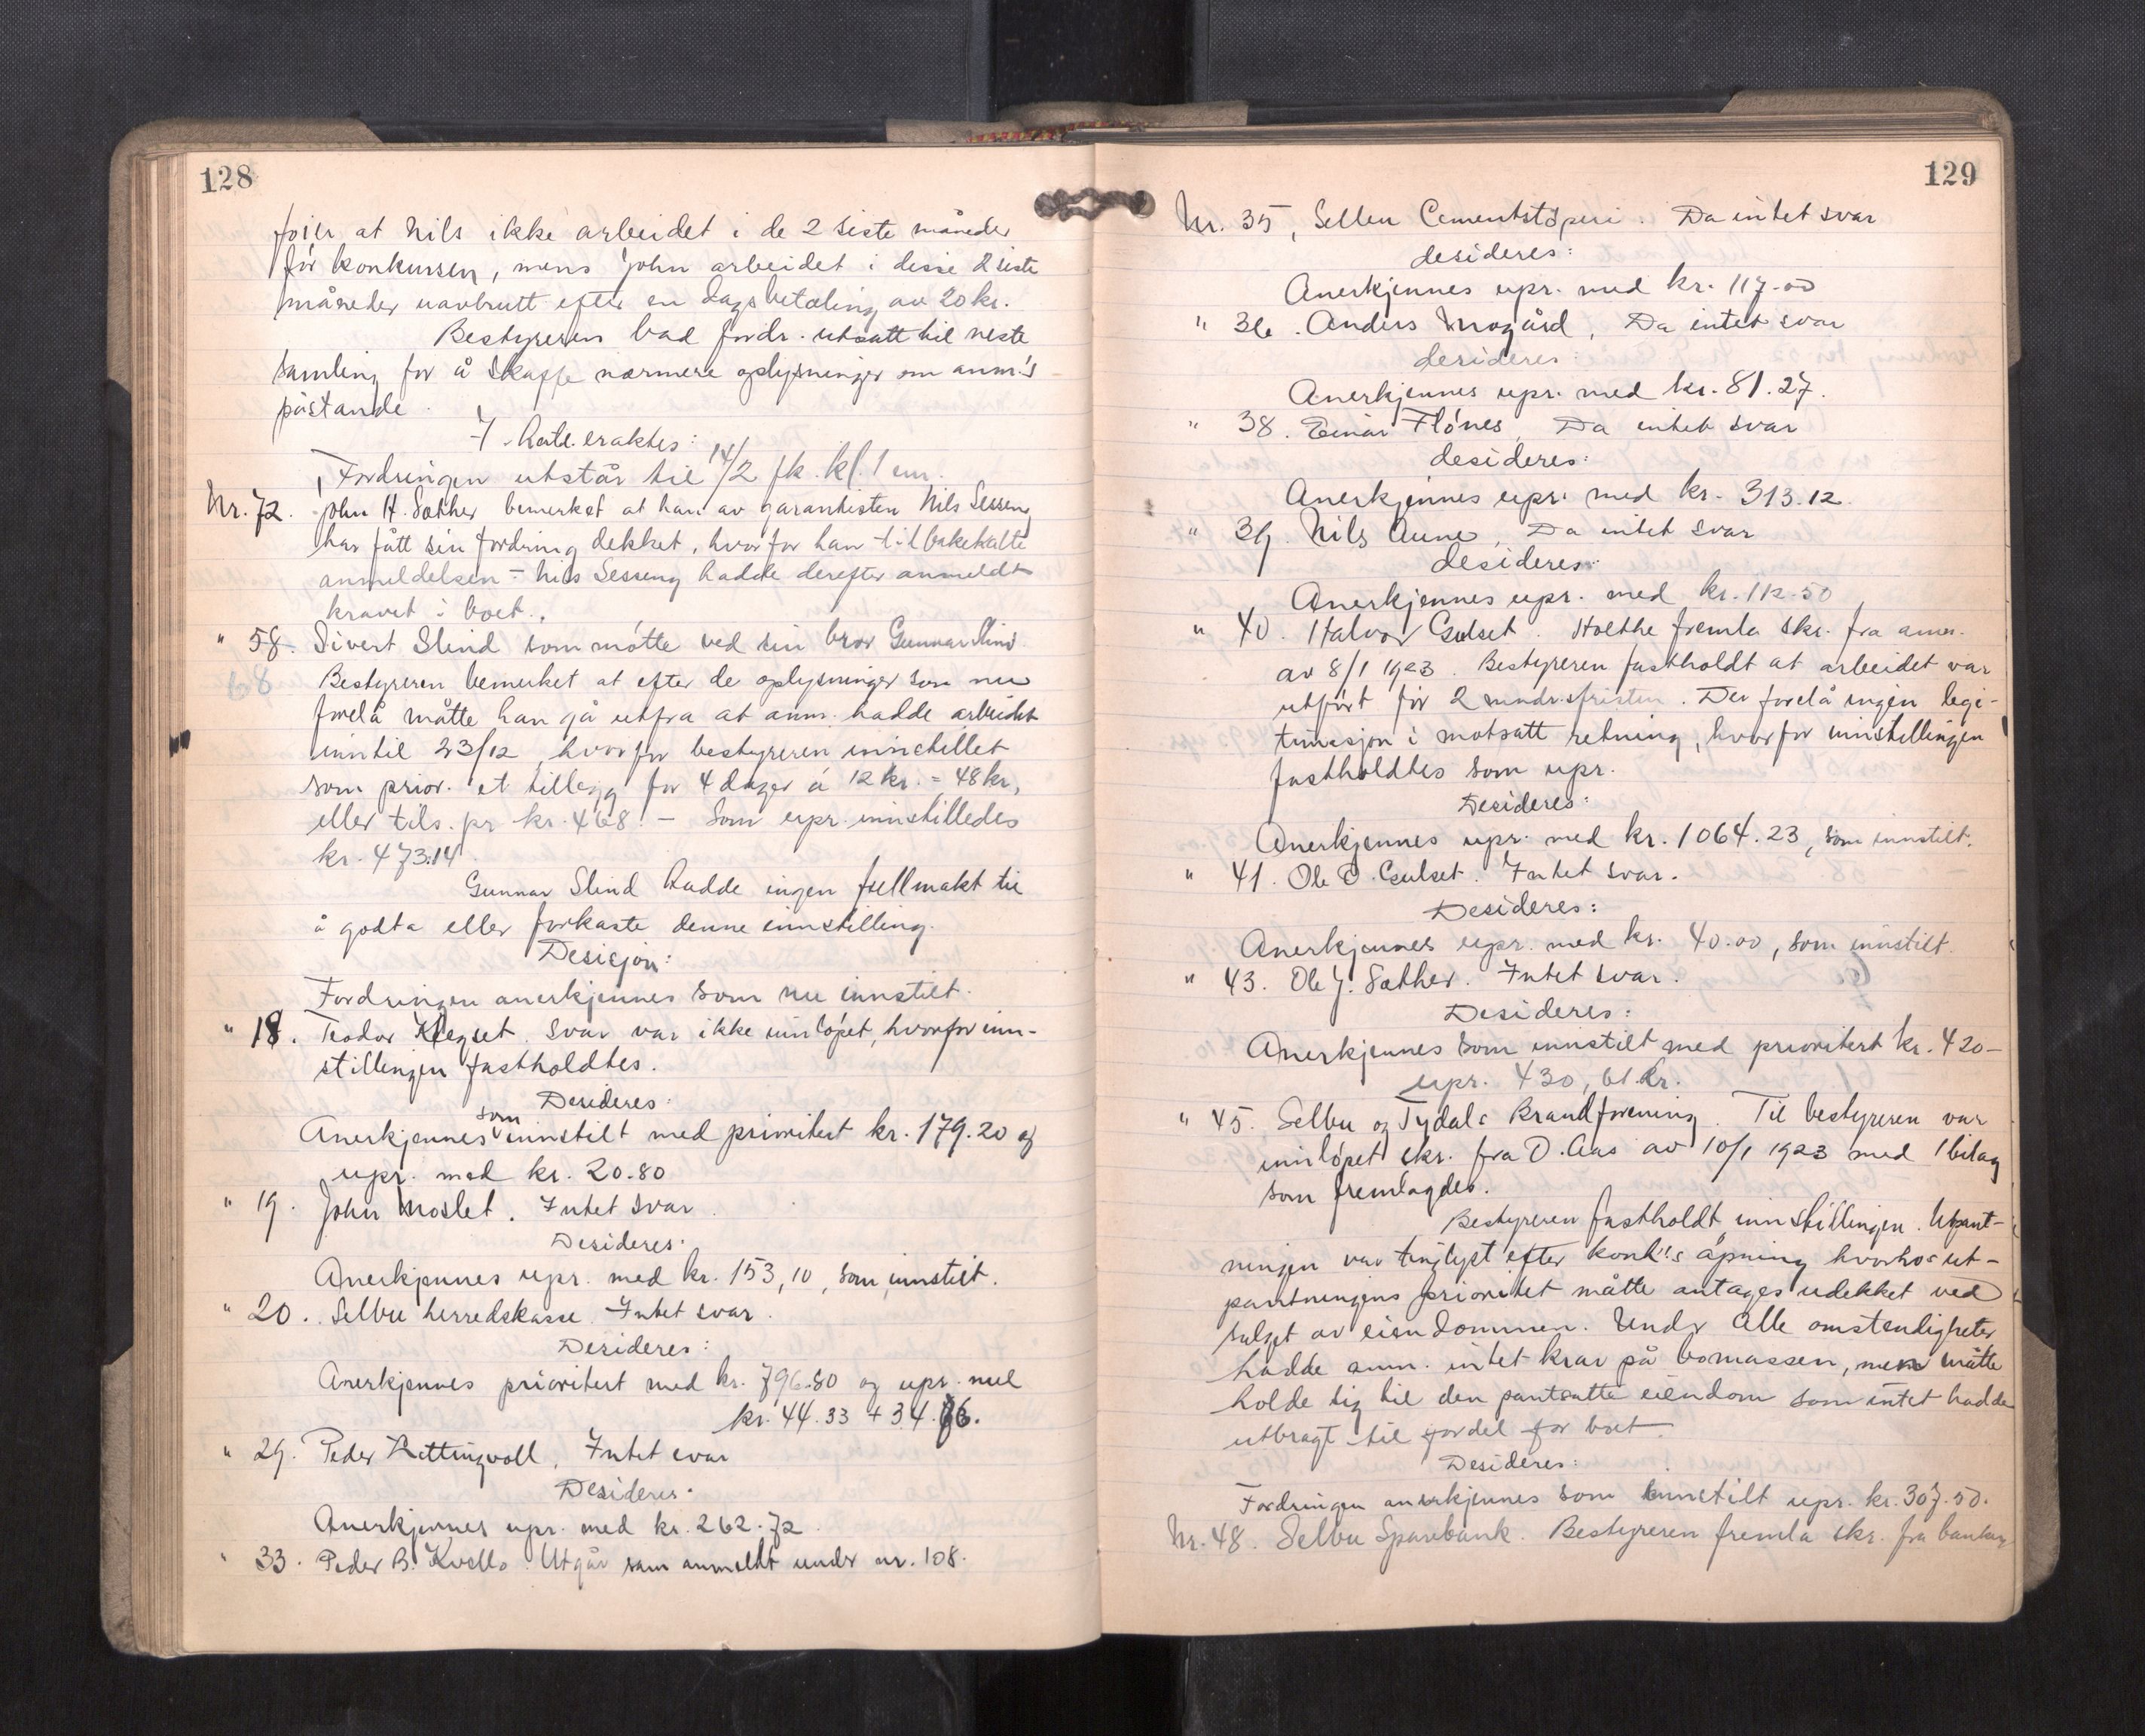 128
foier at Nils ikke arbeidet i de 2 siste måneder
før konkursen, mens John arbeidet i disse 2 siste
måneder uavbrutt efter en dagsbetaling av 20 kr.
Bestyreren bad fordr. utsatt til neste
samling for å skaffe nærmere oplysninger om anm's
påstande.
Fordringen utstår til 14/2 fk. kl. 1 em.
Nr. 72. John H. Sæther bemerket at han av garantisten Nils Sesseng
har fått sin fordring dekket, hvorfor han tilbakekalte
anmeldelsen - Nils Sesseng hadde derefter anmeldt
kravet i boet.
" 58. Sivert Slind som møtte ved sin bror Gunnar Slind.
68 Bestyreren bemerket at efter de oplysninger som nu
forelå måtte han gå utfra at anm. hadde arbeidet
inntil 23/12, hvorfor bestyreren innstillet
som prior. et tillegg for 4 dager á 12 kr. = 48 kr,
eller tils. pr kr. 468. - Som upr. innstilledes
kr. 473.14.
Gunnar Slind hadde ingen fullmakt til
å godta eller forkaste denne innstilling.
Desisjon:
Fordringen anerkjennes som nu innstilt.
" 18. Teodor Klegset. Svar var ikke innløpet, hvorfor inn-
stillingen fastholdtes.
Desideres:
Anerkjennes som innstilt med prioritert kr. 179.20 og
upr. med kr. 20.80
" 19. John Moslet. Intet svar.
Desideres:
Anerkjennes upr. med kr. 153,10, som innstilt.
" 20. Selbu herredskasse. Intet svar.
Desideres:
Anerkjennes prioritert med kr. 796.80 og upr. med
kr. 44.33 + 34.
" 29. Peder Rettingvoll, Intet svar
Desideres:
Anerkjennes upr. med kr. 262.72.
" 33. Peder B. Kvello. Utgår som anmeldt under nr. 108.
129
Nr. 35, Selbu Cementstøperi. Da intet svar
desideres:
Anerkjennes upr. med kr. 117.00
" 36. Anders Mogård, Da intet svar
desideres:
Anerkjennes upr. med kr. 81.27.
" 38. Einar Flønes, Da intet svar
desideres:
Anerkjennes upr. med kr. 313.12.
" 39. Nils Aune, Da intet svar
desideres:
Anerkjennes upr. med kr. 112.50
" 40. Halvor Gulset. Holthe fremla skr. fra anm.
av 8/1 1923. Bestyreren fastholdt at arbeidet var
utført før 2 mndr.sfristen. Der forelå ingen legi-
timasjon i motsatt retning, hvorfor innstillingen
fastholdtes som upr.
Desideres:
Anerkjennes upr. med kr. 1064.23, som innstilt.
" 41. Ole O. Gulset. Intet svar.
Desideres:
Anerkjennes upr. med kr. 40.00, som innstilt.
" 43. Ole J. Sæther. Intet svar.
Desideres:
Anerkjennes som innstilt med prioritert kr. 420-
upr. 430,61 kr.
" 45. Selbu og Tydals Brandforening. Til bestyreren var
innløpet skr. fra O. Aas av 10/1 1923 med 1 bilag
som fremlagdes.
Bestyreren fastholdt innstillingen. Utpant-
ningen var tinglyst efter konk's åpning hvorhos ut-
pantningens prioritet måtte antages udekket ved
salget av eiendommen. Under alle omstendigheter
hadde anm. intet krav på bomassen, men måtte
holde sig til den pantsatte eiendom som intet hadde
utbragt til fordel for boet.
Desideres:
Fordringen anerkjennes som innstilt upr. kr. 307.50.
Nr. 48. Selbu Sparebank. Bestyreren fremla skr. fra banken